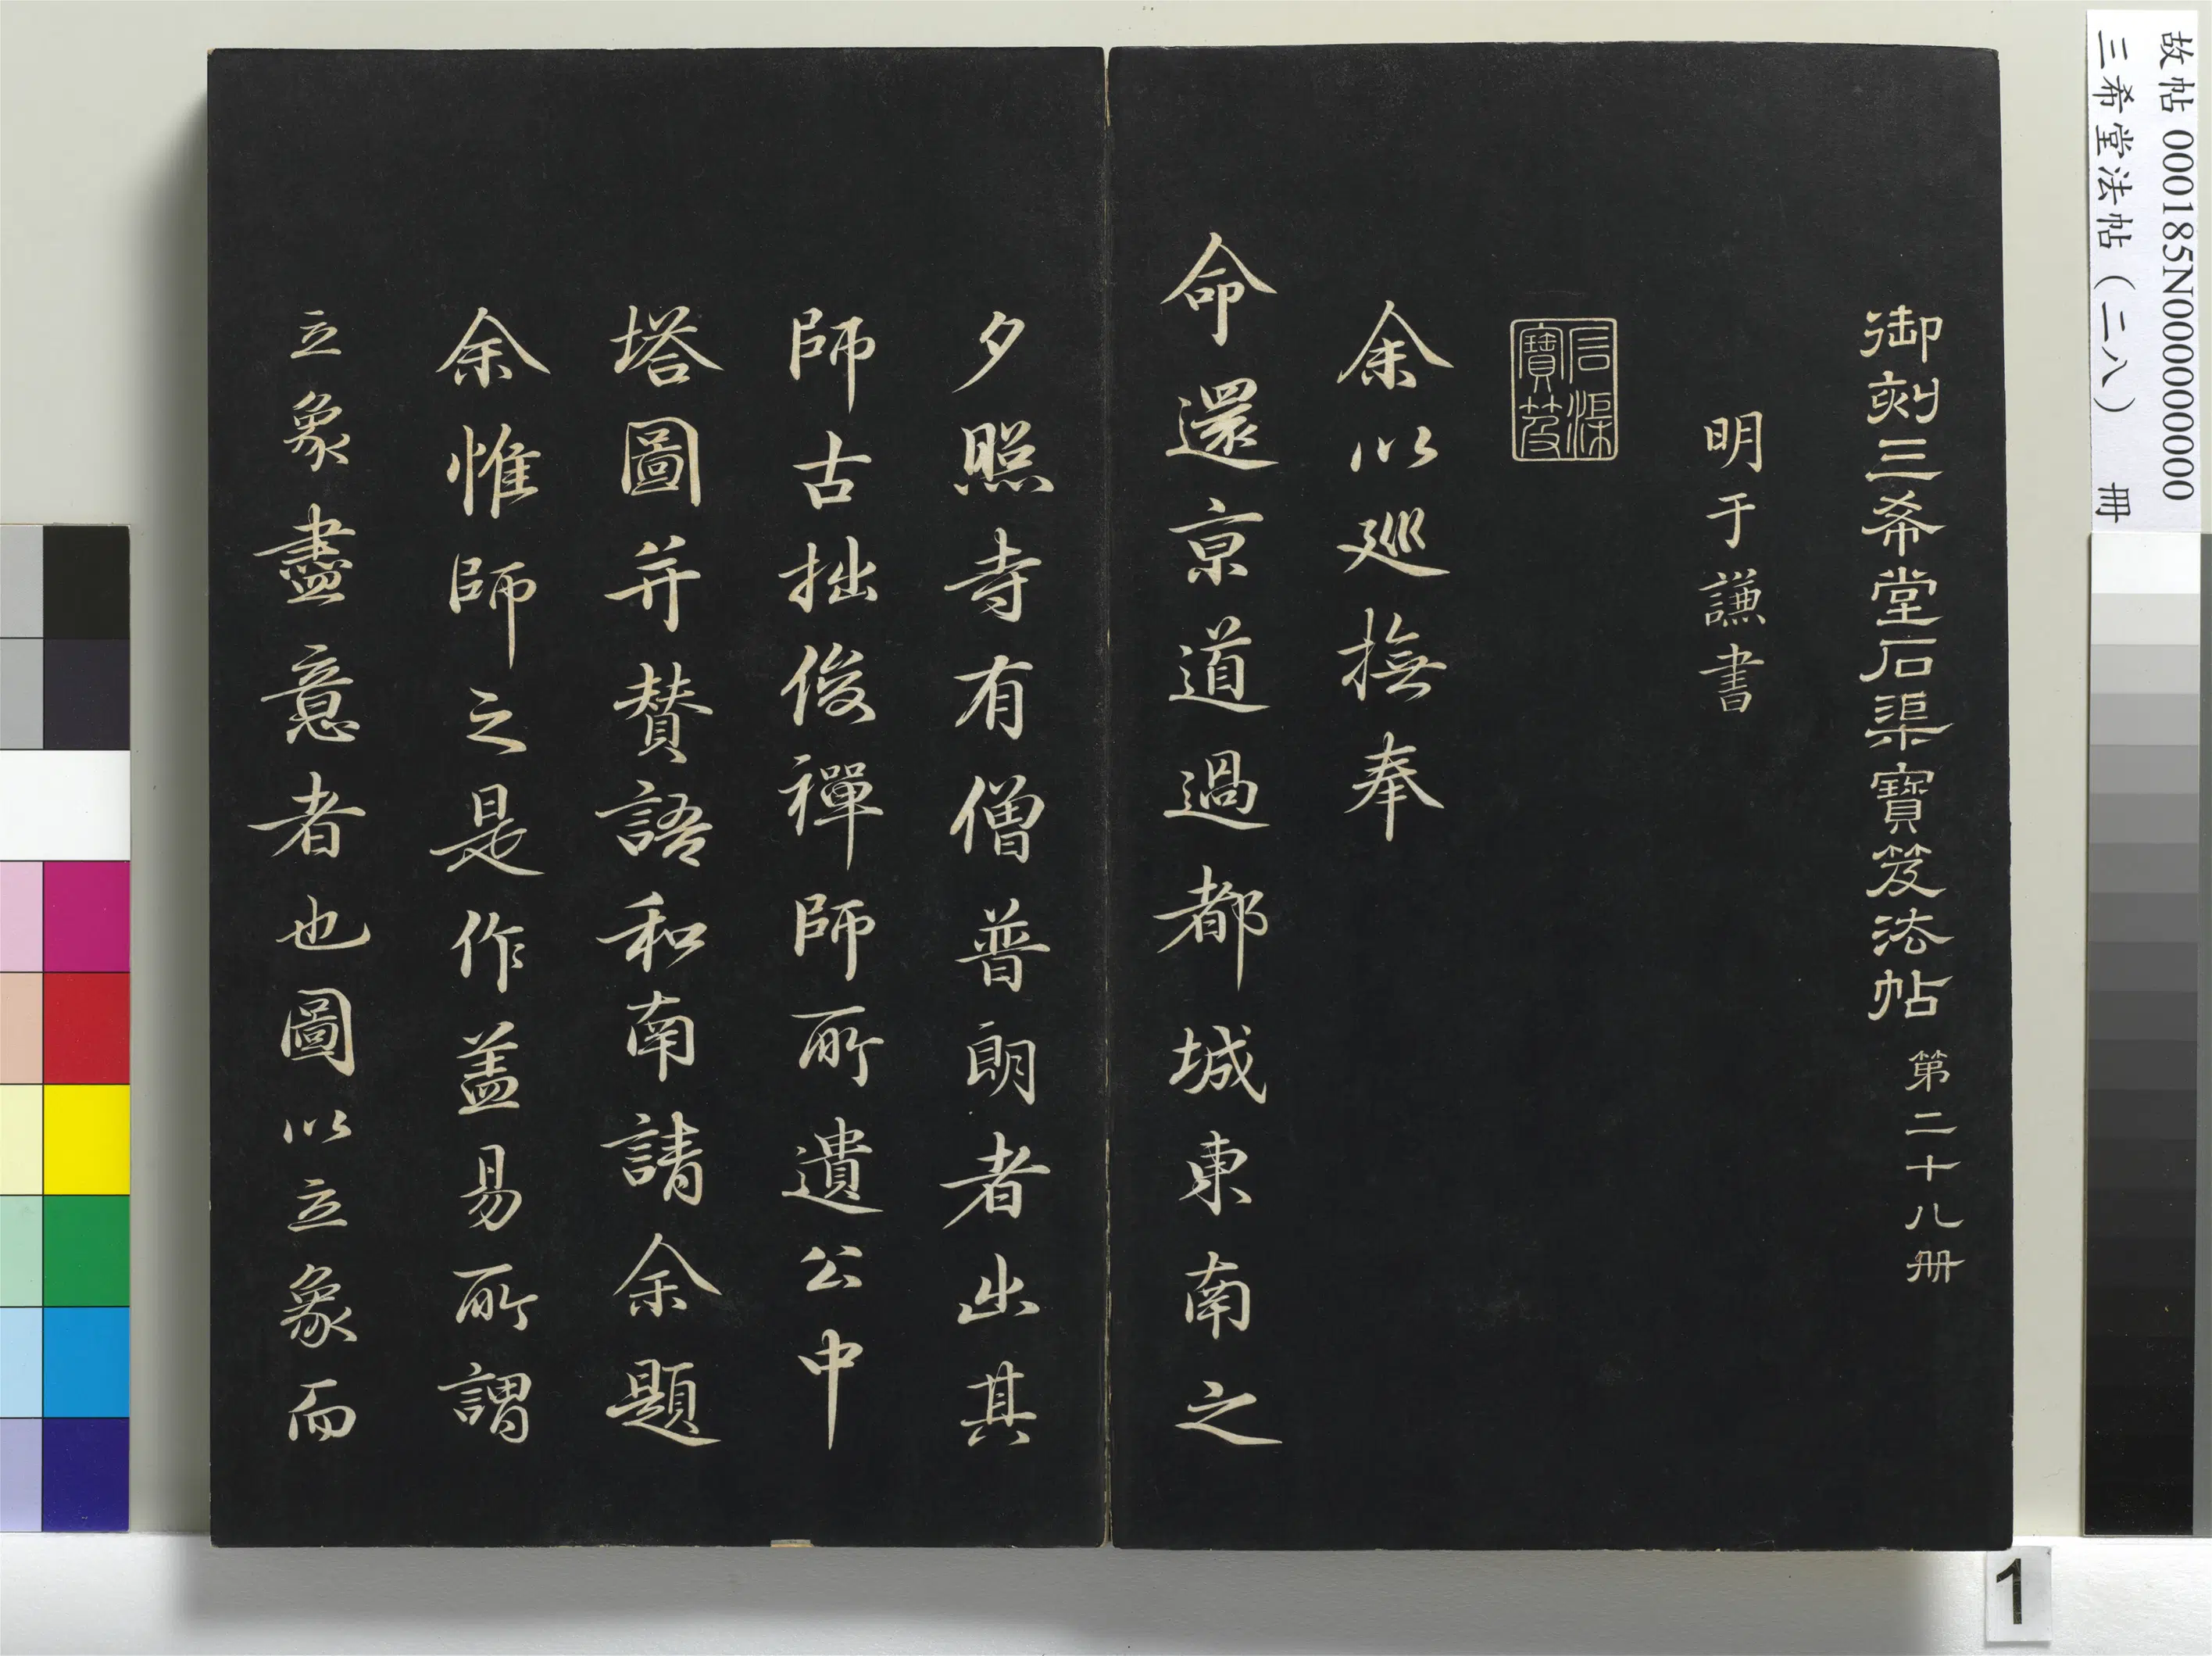 故帖 000185N000000000
三希堂法帖（二八） 冊
御刻三希堂石渠寶笈法帖 第二十八册
明于謙書
石渠寶笈
余以廵撫奉
命還京道過都城東南之
夕照寺有僧普朗者出其
師古拙俊禪師所遺公中
塔圖并賛語和南請余題
余惟師之是作盖易所謂
立象盡意者也圖以立象而
1